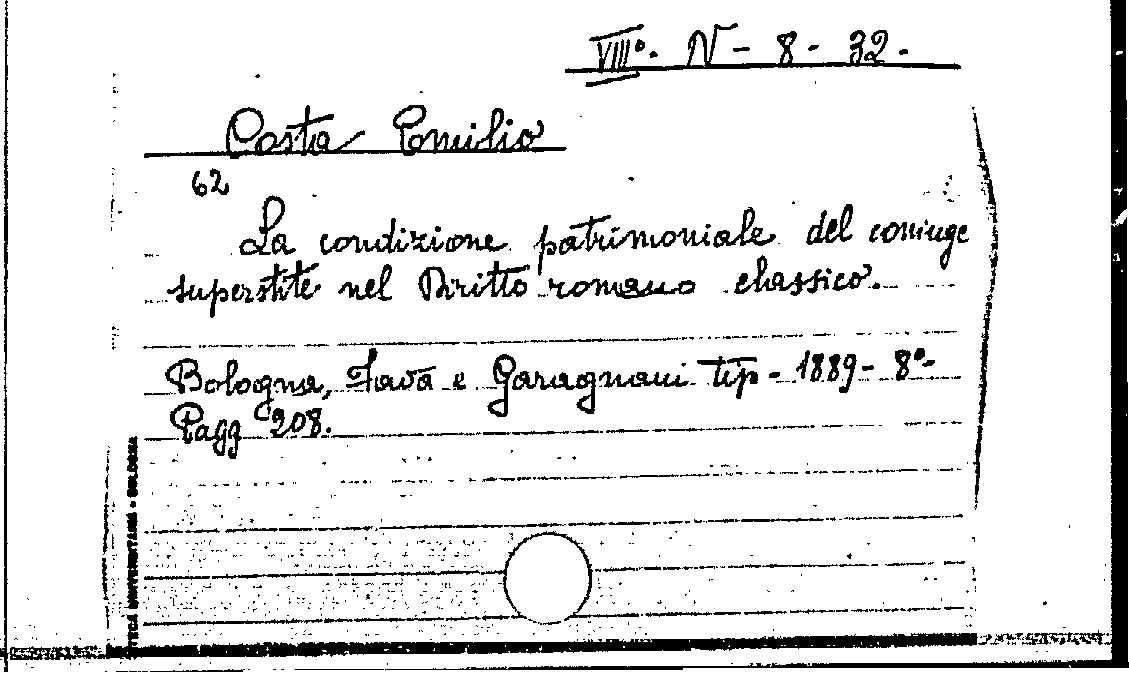 VIII°. N - 8 - 32.
Costa Emilio
62
La condizione patrimoniale del coniuge
superstite nel Diritto romano classico.
Bologna, Fava e Garagnani tip - 1889 - 8°-
Pagg 208.
TECA UNIVERSITARIA - BOLOGNA